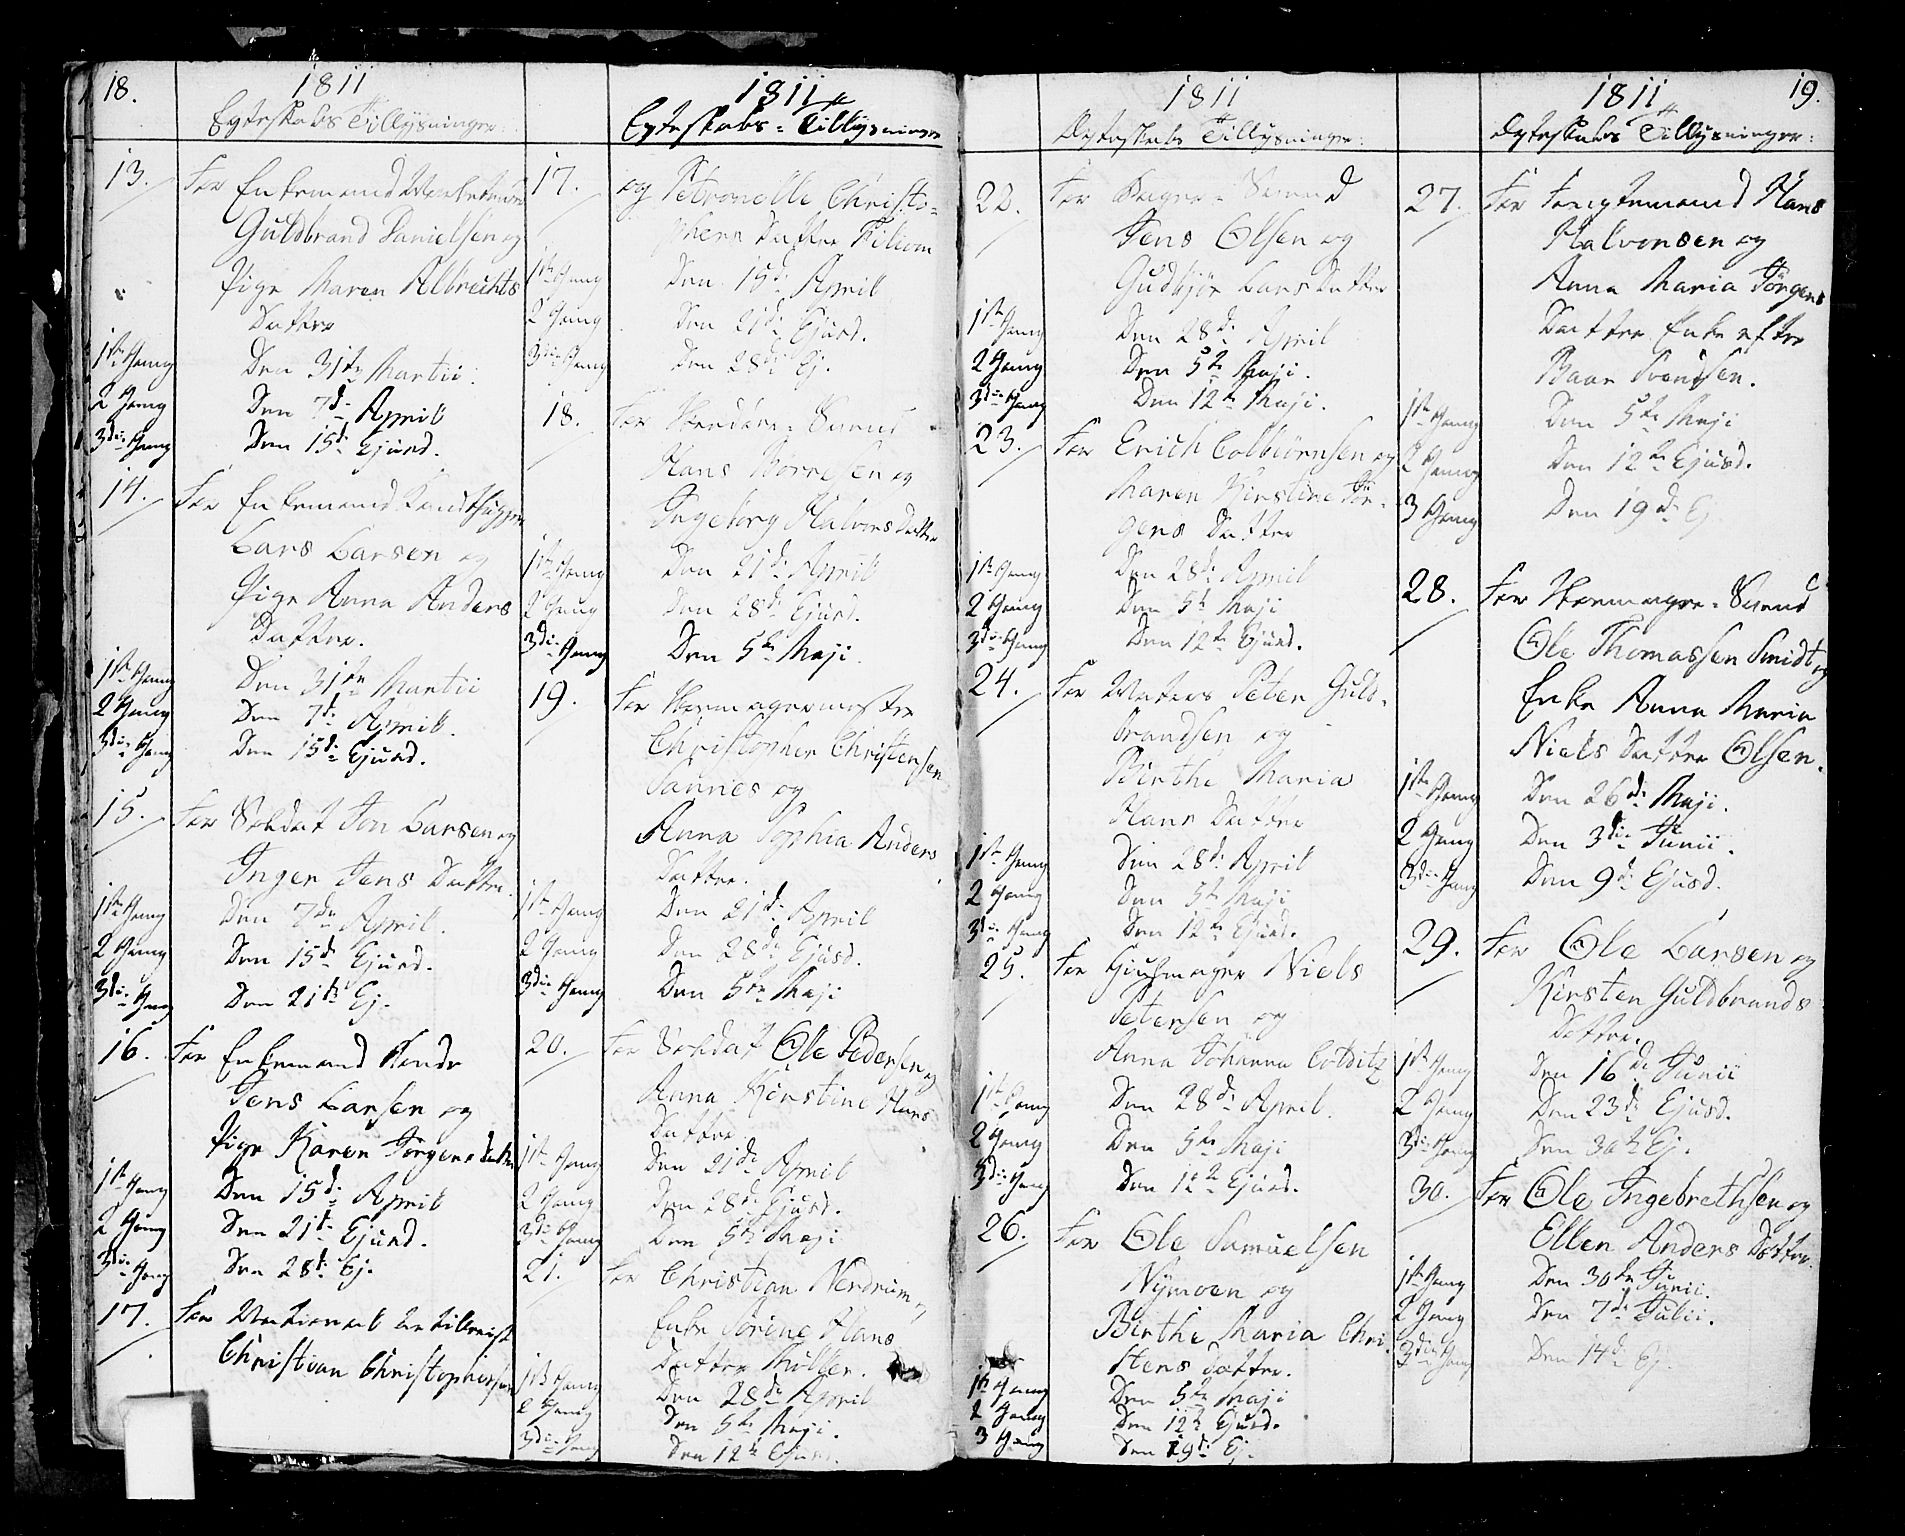 18.
1811
Egteskabs Tillysninger:
13. For Enkemand
Guldbrand Danielsen og
Pige Maren Albrechts
Datter
1ste Gang Den 31te Martii.
2 Gang Den 7de April
3die Gang Den 15de Ejusd.
14. For Enkemand
Lars Larsen og
Pige Anna Anders
Datter.
1ste Gang Den 31te Martii
2 Gang Den 7de April.
3die Gang Den 15de Ejusd.
15. For Soldat Jon Larsen og
Inger Jens Datter.
1ste Gang Den 7de April.
2 Gang Den 15de Ejusd.
3die Gang Den 21te Ej.
16. For Enkemand
Jens Larsen og
Pige Karen Jørgens Datter
1ste Gang Den 15de April
2 Gang Den 21te Ejusd.
3die Gang Den 28de Ej.
17. For National Artillerist
Christian Christophersen
1811
Egteskabs-Tillysninger
17. og Petronelle Christo-
phers Datter
1ste Gang Den 15de April
2 Gang Den 21de Ejusd.
3die Gang Den 28de Ej.
18. For Snedker-Svend
Hans Borresen og
Ingeborg Halvors Datter
1ste Gang Den 21de April
2 Gang Den 28de Ejusd.
3die Gang Den 5te Maji.
19. For Skomagermester
Christopher Christensen
Sannes og
Anna Sophia Anders
Datter.
1ste Gang Den 21de April
2 Gang Den 28de Ejusd.
3die Gang Den 5te Maji
20. For Soldat Ole Pedersen og
Anna Kirstine Hans
Datter
1ste Gang Den 21de April
2 Gang Den 28de Ejusd.
3die Gang Den 5te Maji
21. For Christian Nerdrum og
Enke Sorine Hans
Datter Müller.
1ste Gang Den 28de April
2 Gang Den 5te Maji.
3die Gang Den 12te Ejusd.
1811
Egteskabs Tillysninger:
22. For Bager-Svend
Jens Olsen og
Gudbjør Lars Datter
1ste Gang Den 28de April
2 Gang Den 5te Maji.
3die Gang Den 12te Maji.
23. For Erich Colbiørnsen og
Maren Kirstine Jør-
gens Datter
1ste Gang Den 28de April
2 Gang Den 5te Maji
3die Gang Den 12te Ejusd.
24. For Matros Peter Guld-
brandsen og
Birthe Maria
Hans Datter
1ste Gang Den 28de April
2 Gang Den 5te Maji
3die Gang Den 12te Ejusd.
25. For Hjulmager Niels
Petersen og
Anna Johanna Colditz
1ste Gang Den 28de April.
2 Gang Den 5te Maji
3die Gang Den 12te Ejusd.
26. For Ole Samuelsen
Nymoen og
Birthe Maria Chri-
stens Datter.
1ste Gang Den 5te Maji
2 Gang Den 12te Ejusd.
3 Gang Den 19de Ej.
1811
19.
Egteskabs Tillysninger:
27. For Hans
Halvorsen og
Anna Maria Jørgens
Datter Enke efter
Baar Svendsen.
1ste Gang Den 5te Maji
2 Gang Den 12te Ejusd.
3 Gang Den 19de Ej
28. For Skomager-Svend
Ole Thomassen Smidt og
Enke Anna Maria
Niels Datter Olsen.
1ste Gang Den 26de Maji.
2 Gang Den 3die Junii.
3die Gang Den 9de Ejusd.
29. For Ole Larsen og
Kirsten Guldbrands
Datter.
1ste Gang Den 16de Junii
2 Gang Den 23de Ejusd.
3die Gang Den 30te Ej.
30. For Ole Ingebrethsen og
Ellen Anders Datter.
1ste Gang Den 30te Junii.
2 Gang Den 7de Julii.
3die Gang Den 14de Ej.